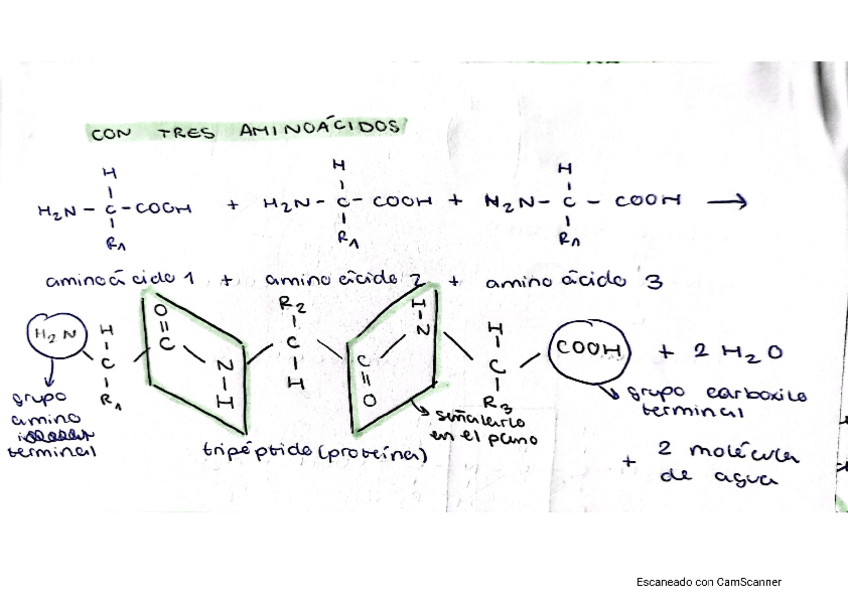 CON TRES AMINOÁCIDOS
H H H
H₂N - C - COOH + H₂N - C - COOH + H₂N - C - COOH →
R₁ R₁ R₁
aminoácido 1 + aminoácido 2 + aminoácido 3
H₂N H O=C N-H R₂ C H C=O H-N H COOH + 2 H₂O
C C
R₁ R₃
grupo
amino
terminal
tripéptido (proteína)
señalarlo
en el plano
grupo carboxilo
terminal
+ 2 molécula
de agua
Escaneado con CamScanner